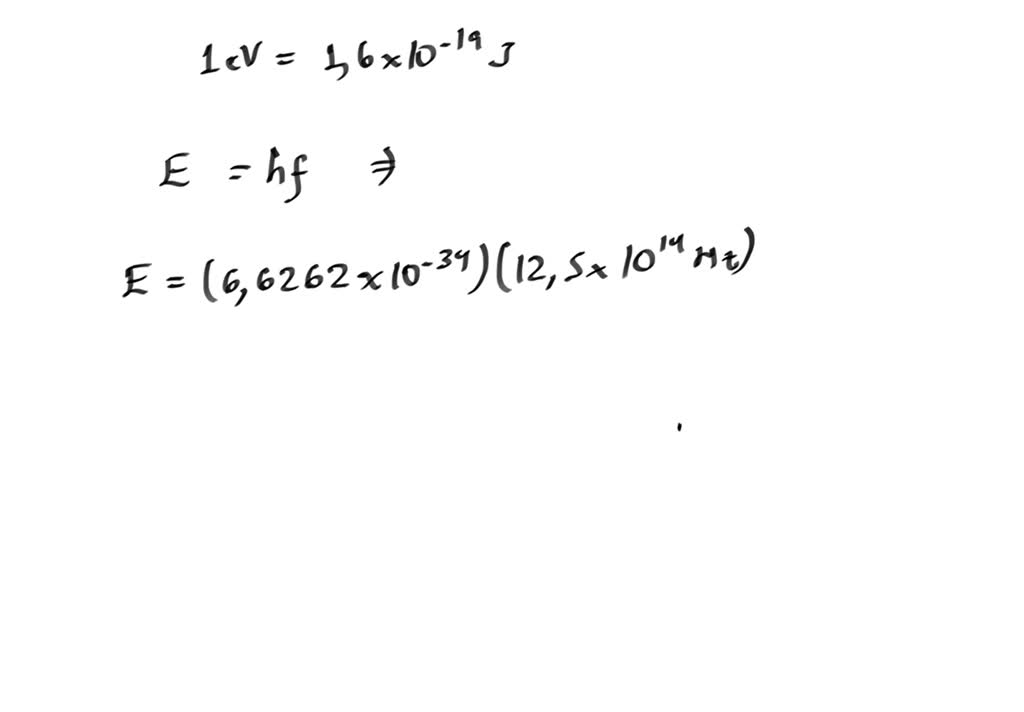 1eV = 1,6x10^-19 J
E = hf ⇒
E = (6,6262x10^-34)(12,5x10^14 Hz)